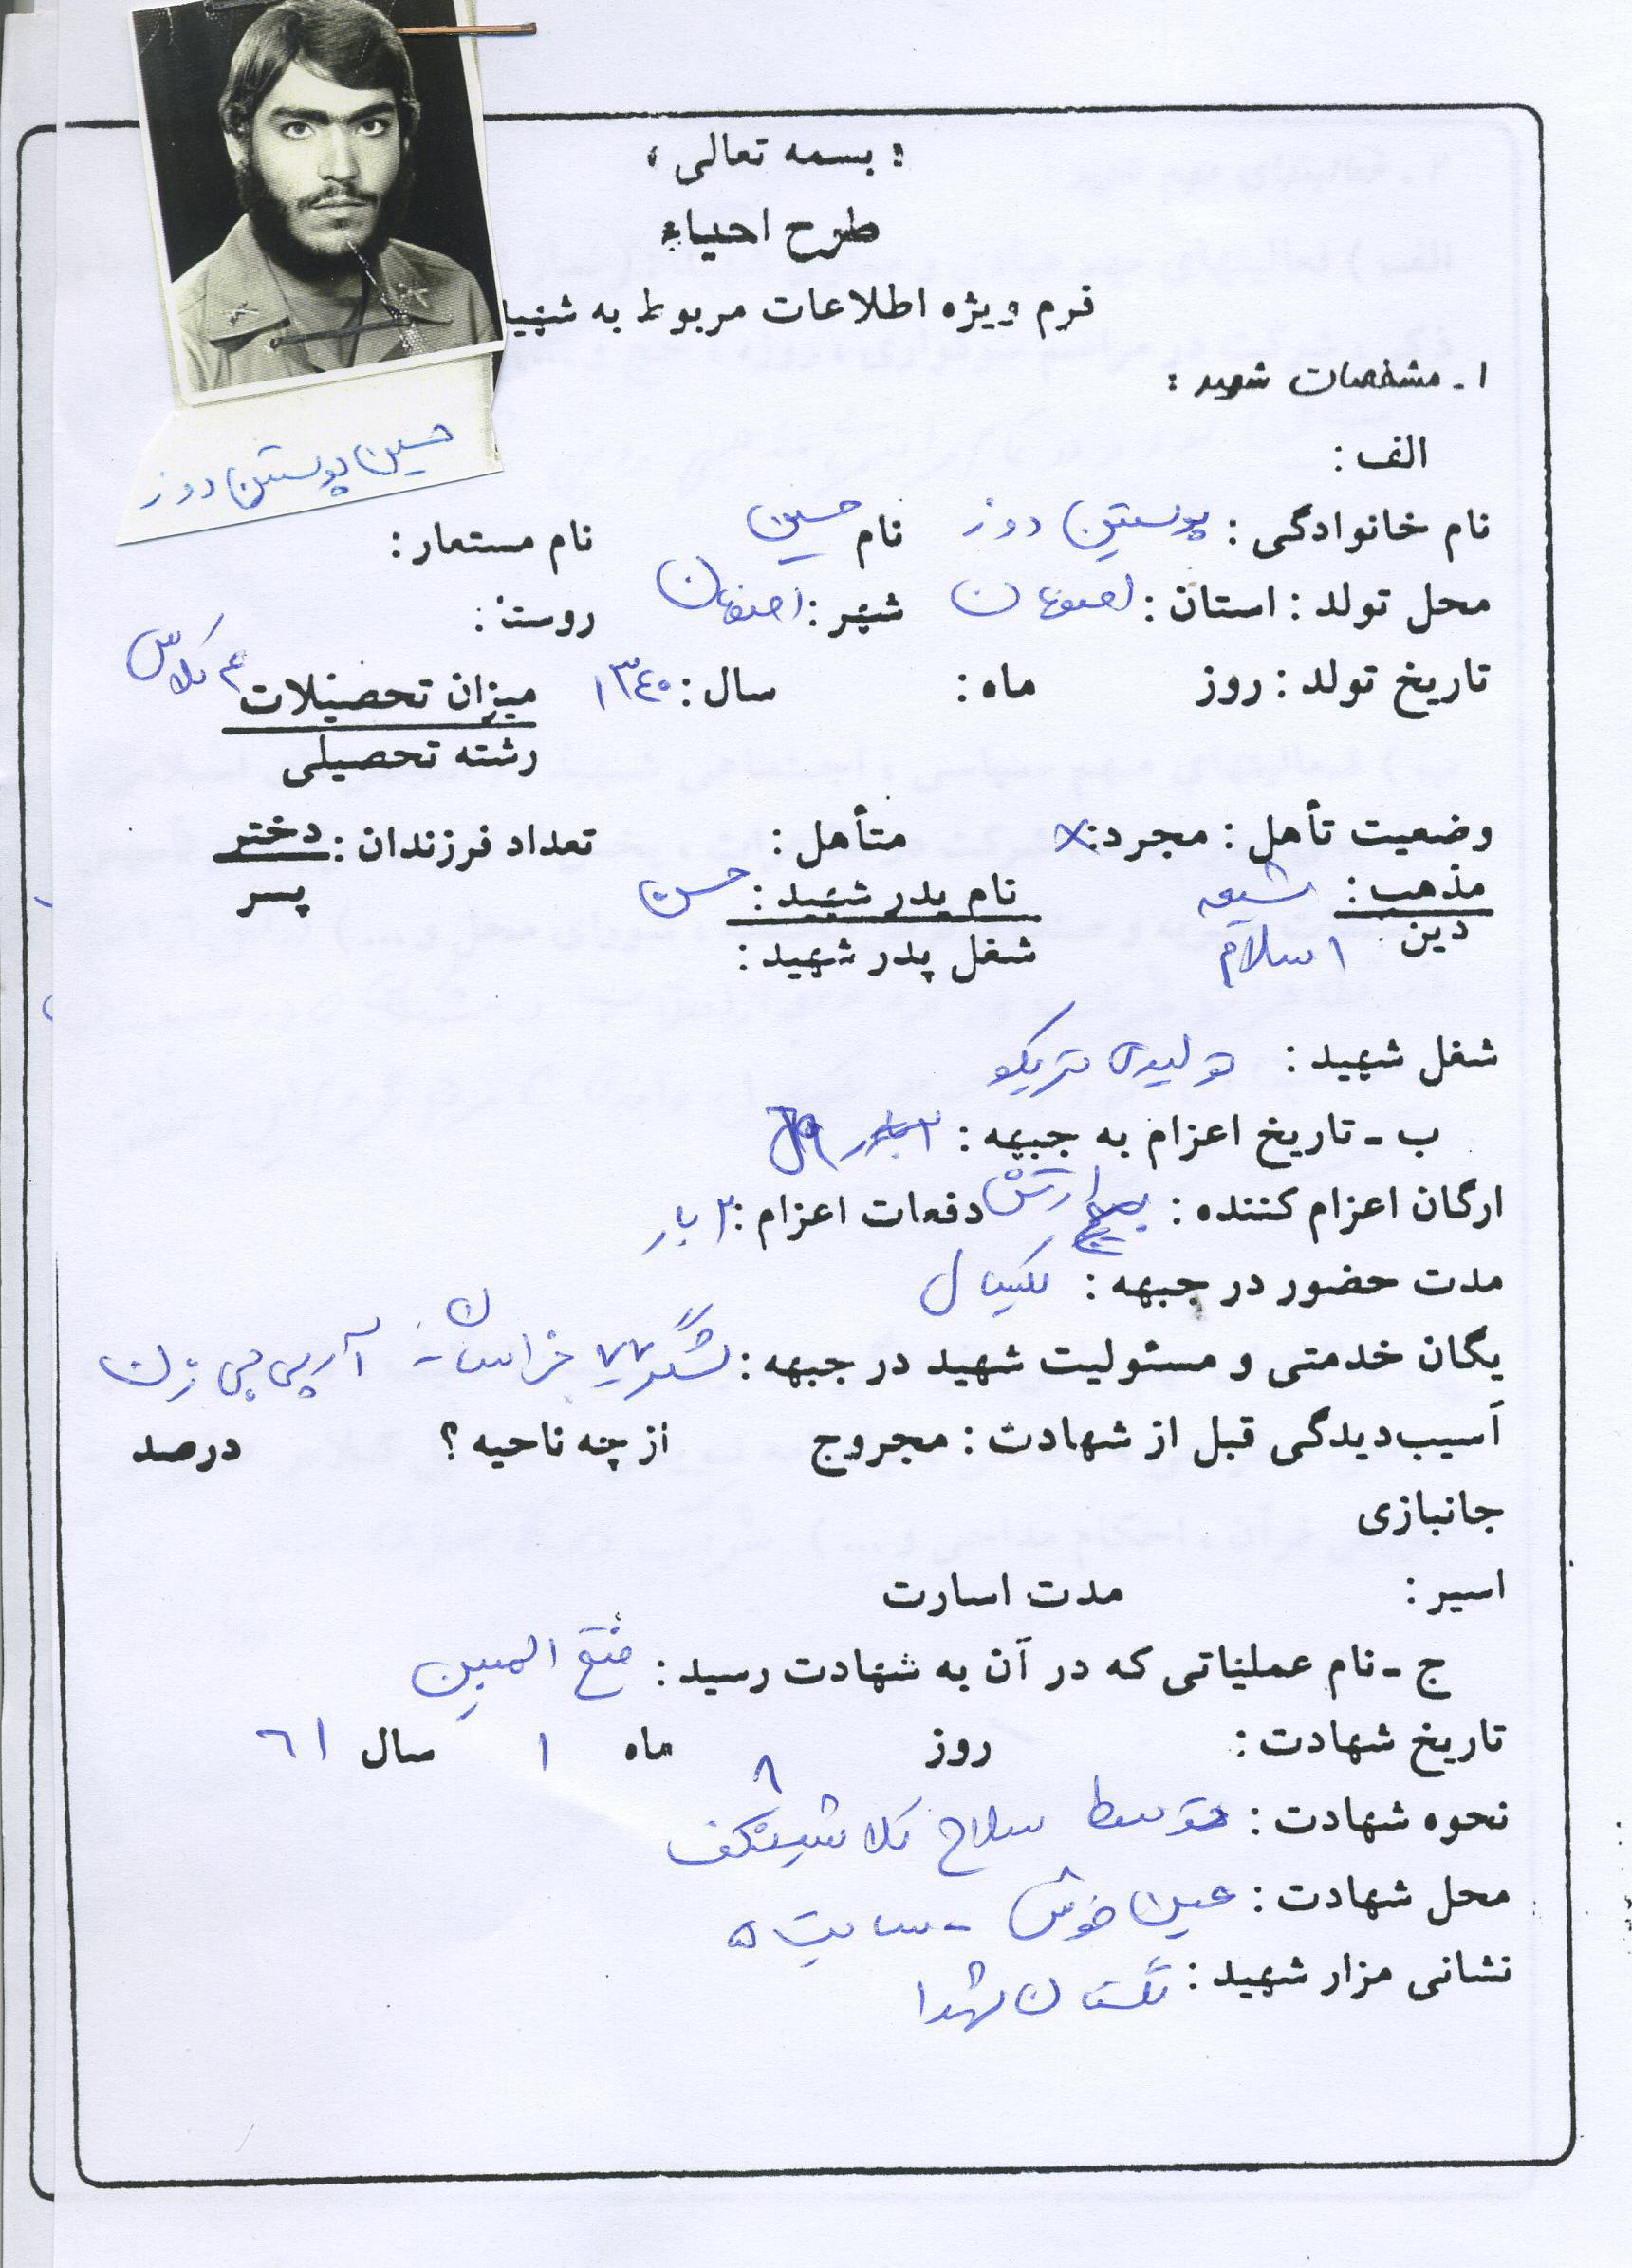 : بسمه تعالی ،
طرح احیاء
فرم ویژه اطلاعات مربوط به شهید
۱ـ مشخصات شهید :
حسین پوستین دوز
الف :
نام خانوادگی : پوستین دوز نام حسین نام مستعار :
محل تولد : استان : اصفهان شهر : اصفهان روستا :
تاریخ تولد : روز ماه : سال : ۱۳۴۰ میزان تحصیلات کلاس
رشته تحصیلی
وضعیت تأهل : مجرد : × متأهل : تعداد فرزندان : دختر
پسر
مذهب : شیعه نام پدر شهید : حسن
دین اسلام شغل پدر شهید :
شغل شهید : تولیدی تریکو
ب ـ تاریخ اعزام به جبهه :
ارگان اعزام کننده : ارتش دفعات اعزام : ۳ بار
مدت حضور در جبهه : یکسال
یگان خدمتی و مسئولیت شهید در جبهه : لشگر ۷۷ خراسان - آرپی جی زن
آسیب‌دیدگی قبل از شهادت : مجروح از چه ناحیه ؟ درصد
جانبازی
اسیر : مدت اسارت
ج ـ نام عملیاتی که در آن به شهادت رسید : فتح المبین
تاریخ شهادت : روز ۸ ماه ۱ سال ۶۱
نحوه شهادت : توسط سلاح کلاشینکف
محل شهادت : عین خوش - سایت ۵
نشانی مزار شهید : گلستان شهدا